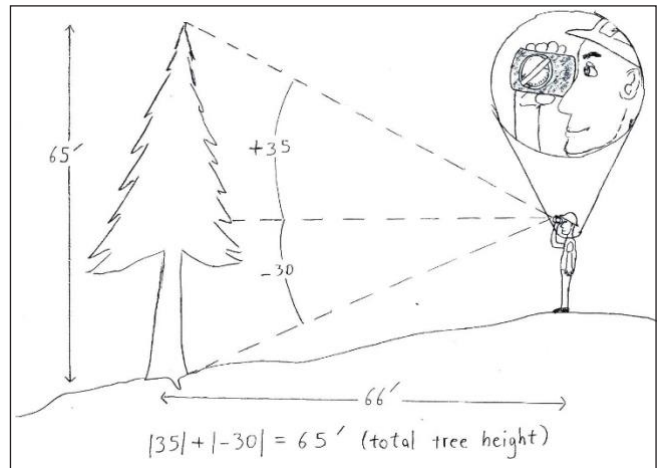 65'
+35
-30
66'
|35| + |-30| = 65' (total tree height)